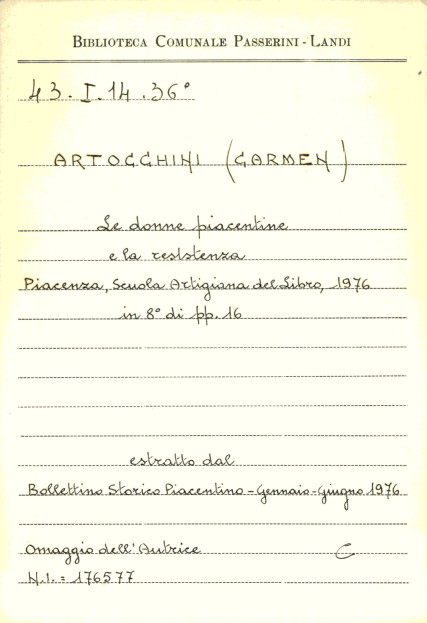 BIBLIOTECA COMUNALE PASSERINI-LANDI
43.I.14.36°
ARTOCCHINI (CARMEN)
Le donne piacentine
e la resistenza
Piacenza, Scuola Artigiana del Libro, 1976
in 8° di pp. 16
estratto dal
Bollettino Storico Piacentino - Gennaio-Giugno 1976
Omaggio dell'Autrice C
N.I. = 176577